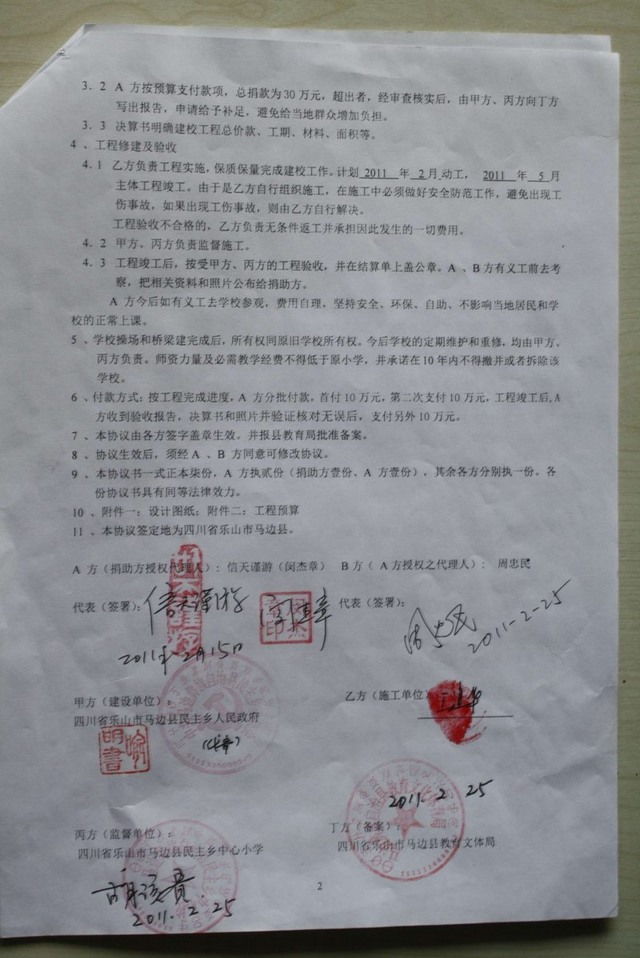 3．2 A 方按预算支付款项，总捐款为 30 万元，超出者，经审查核实后，由甲方、丙方向丁方
写出报告，申请给予补足，避免给当地群众增加负担。
3．3 决算书明确建校工程总价款、工期、材料、面积等。
4 、工程修建及验收
4．1 乙方负责工程实施，保质保量完成建校工作。计划 2011 年 2 月动工， 2011 年 5 月
主体工程竣工。由于是乙方自行组织施工，在施工中必须做好安全防范工作，避免出现工
伤事故，如果出现工伤事故，则由乙方自行解决。
工程验收不合格的，乙方负责无条件返工并承担因此发生的一切费用。
4．2 甲方、丙方负责监督施工。
4．3 工程竣工后，按受甲方、丙方的工程验收，并在结算单上盖公章。A 、B 方有义工前去考
察，把相关资料和照片公布给捐助方。
A 方今后如有义工去学校参观，费用自理，坚持安全、环保、自助、不影响当地居民和学
校的正常上课。
5 、学校操场和桥梁建完成后，所有权同原旧学校所有权。今后学校的定期维护和重修，均由甲方、
丙方负责。师资力量及必需教学经费不得低于原小学，并承诺在 10 年内不得撤并或者拆除该
学校。
6 、付款方式：按工程完成进度，A 方分批付款，首付 10 万元，第二次支付 10 万元，工程竣工后,A
方收到验收报告，决算书和照片并验证核对无误后，支付另外 10 万元。
7 、本协议由各方签字盖章生效。并报县教育局批准备案。
8 、协议生效后，须经 A 、B 方同意可修改协议。
9 、本协议书一式正本柒份，A 方执贰份（捐助方壹份、A 方壹份），其余各方分别执一份。各
份协议书具有同等法律效力。
10 、附件一：设计图纸；附件二：工程预算
11 、本协议签定地为四川省乐山市马边县。
A 方（捐助方授权代理人）：信天谨游（闵杰章） B 方（ A 方授权之代理人）： 周忠民
代表（签署）： 信天谨游 闵杰章 代表（签署）： 周忠民 2011-2-25
2011年2月15日
甲方（建设单位）： 乙方（施工单位）
四川省乐山市马边县民主乡人民政府
2011.2.25
丙方（监督单位）： 丁方（备案）：
四川省乐山市马边县民主乡中心小学 四川省乐山市马边县教育文体局
2011.2.25
2